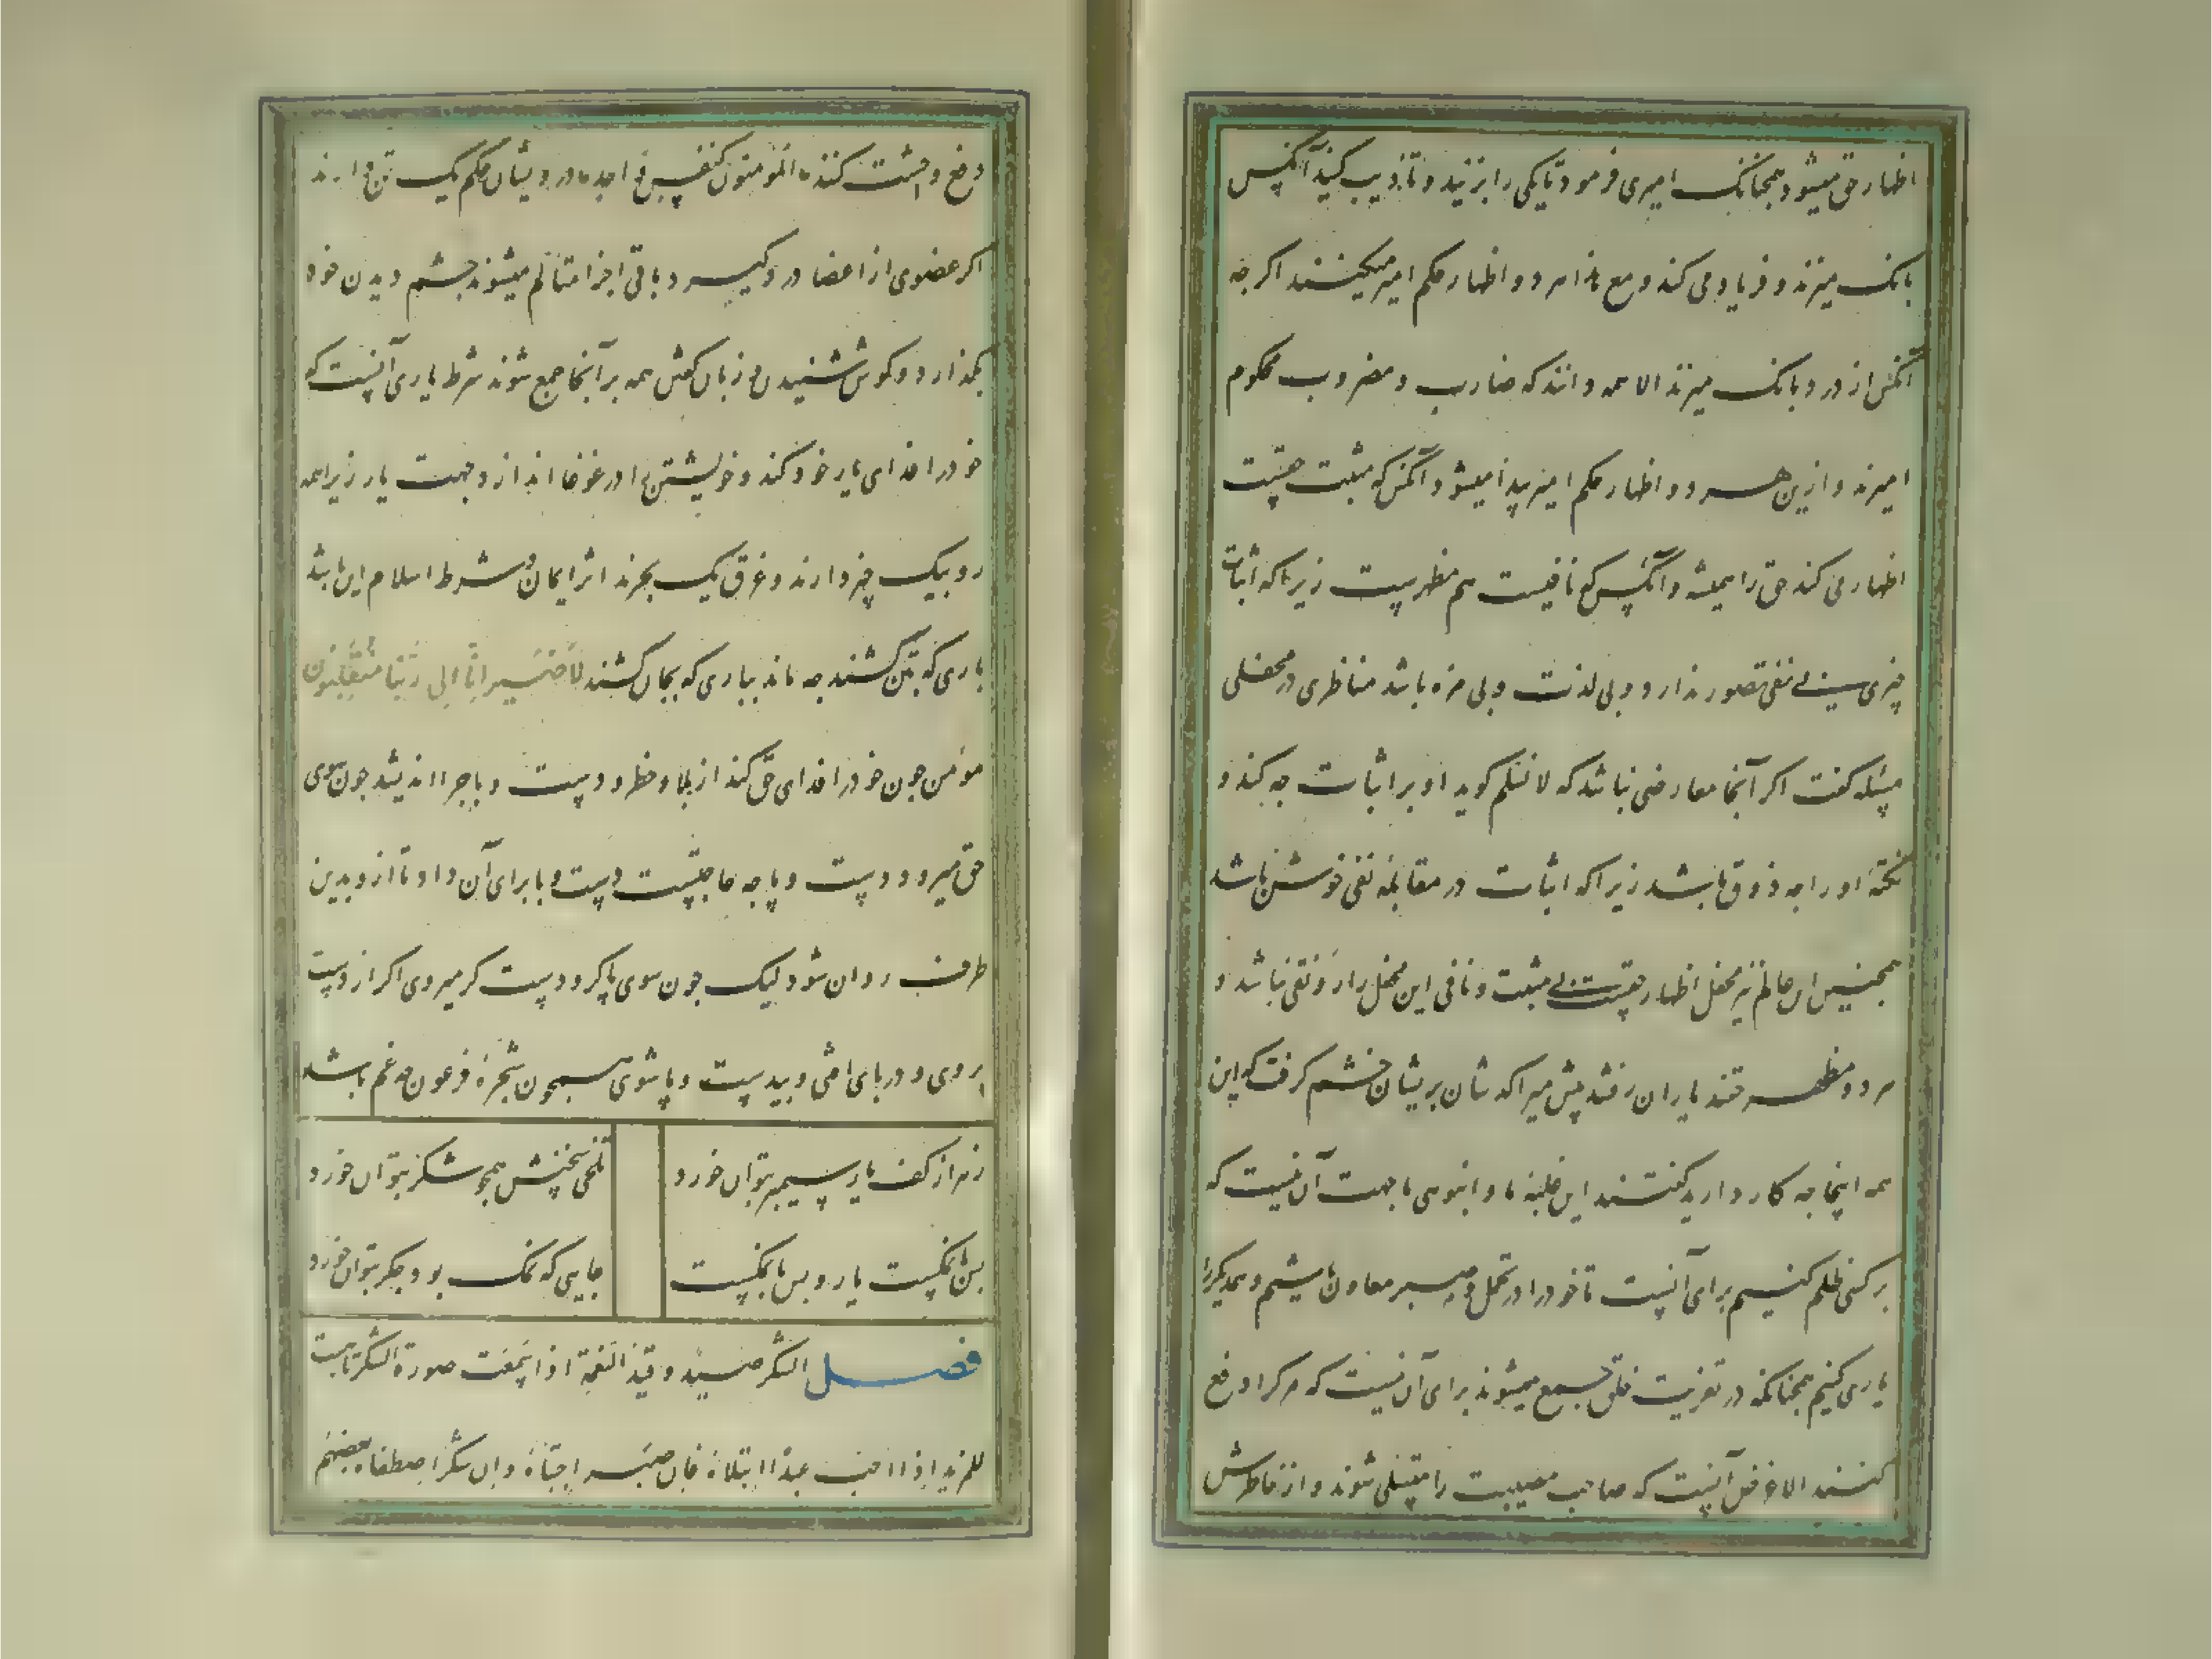 اظهار حق میشود همچنانک امیری فرمود تا یکی را بزنید و تأدیب کنید آنکس
بانک میزند و فریاد می کند و مع هذا هر دو اظهار حکم امیر میکنند اکر چه
آنکس از درد بانک میزند الا همه دانند که ضارب و مضروب محکوم
امیرند و ازین هر دو اظهار حکم امیر پیدا میشود آنکس که مثبت حقست
اظهار می کند حق را همیشه و آنکس که نافیست هم مظهرست زیرا که اثبات
چیزی بی نفی تصور ندارد و بی لذت و بی مزه باشد مناظری در محفلی
مسئله کفت اکر آنجا معارضی نباشد که لا نسلم کوید او بر اثبات چه کند و
نکته او را چه ذوق باشد زیرا که اثبات در مقابله نفی خوش باشد
همچنین این عالم نیز محفل اظهار حقست بی مثبت و نافی این محفل را رونقی نباشد و
هر دو مظهر حقند یاران رفتند پیش میر اکدشان بریشان خشم کرفت که این
همه اینجا چه کار دارید کفتند این غلبه ما و انبوهی ما جهت آن نیست که
بر کسی ظلم کنیم برای آنست تا خود را در تحمل و صبر معاون باشیم و همدیکر را
یاری کنیم همچنانکه در تعزیت خلق جمع میشوند برای آن نیست که مرک را دفع
کنند الا غرض آنست که صاحب مصیبت را متسلی شوند و از خاطرش
دفع وحشت کنند المؤمنون کنفس واحده درویشان حکم یک تن دارند
اکر عضوی از اعضا درد کیرد باقی اجزا متألم میشوند چشم دیدن خود
بکذارد و کوش شنیدن و زبان کفتن همه بر آنجا جمع شوند شرط یاری آنست که
خود را فدای یار خود کند و خویشتن را در غوغا اندازد جهت یار زیرا همه
رو بیک چیز دارند و غرق یک بحرند اثر ایمان و شرط اسلام این باشد
باری که بتن کشند چه ماند بباری که بجان کشند لا ضیر انا الی ربنا منقلبون
مؤمن چون خود را فدای حق کند از بلا و خطر و دست و پا چرا اندیشد چون سوی
حق میرود دست و پا چه حاجتست دست و پا برای آن داد تا ازو بدین
طرف روان شود لیک چون سوی پاکر و دست کر میروی اکر از دست
بروی و در پای افتی و بیدست و پا شوی همچون سحره فرعون چه غم باشد
زهر از کف یار سیمبر بتوان خورد
تلخی سخنش همچو شکر بتوان خورد
بس با نمکست یار و بس با نمکست
جایی که نمک بود جکر بتوان خورد
فصل الشکر صید و قید النعمة اذا سمعت صورة الشکر تاهبت
للمزید اذا احب عبدا ابتلاه فان صبر اجتباه و ان شکر اصطفاه بعضهم